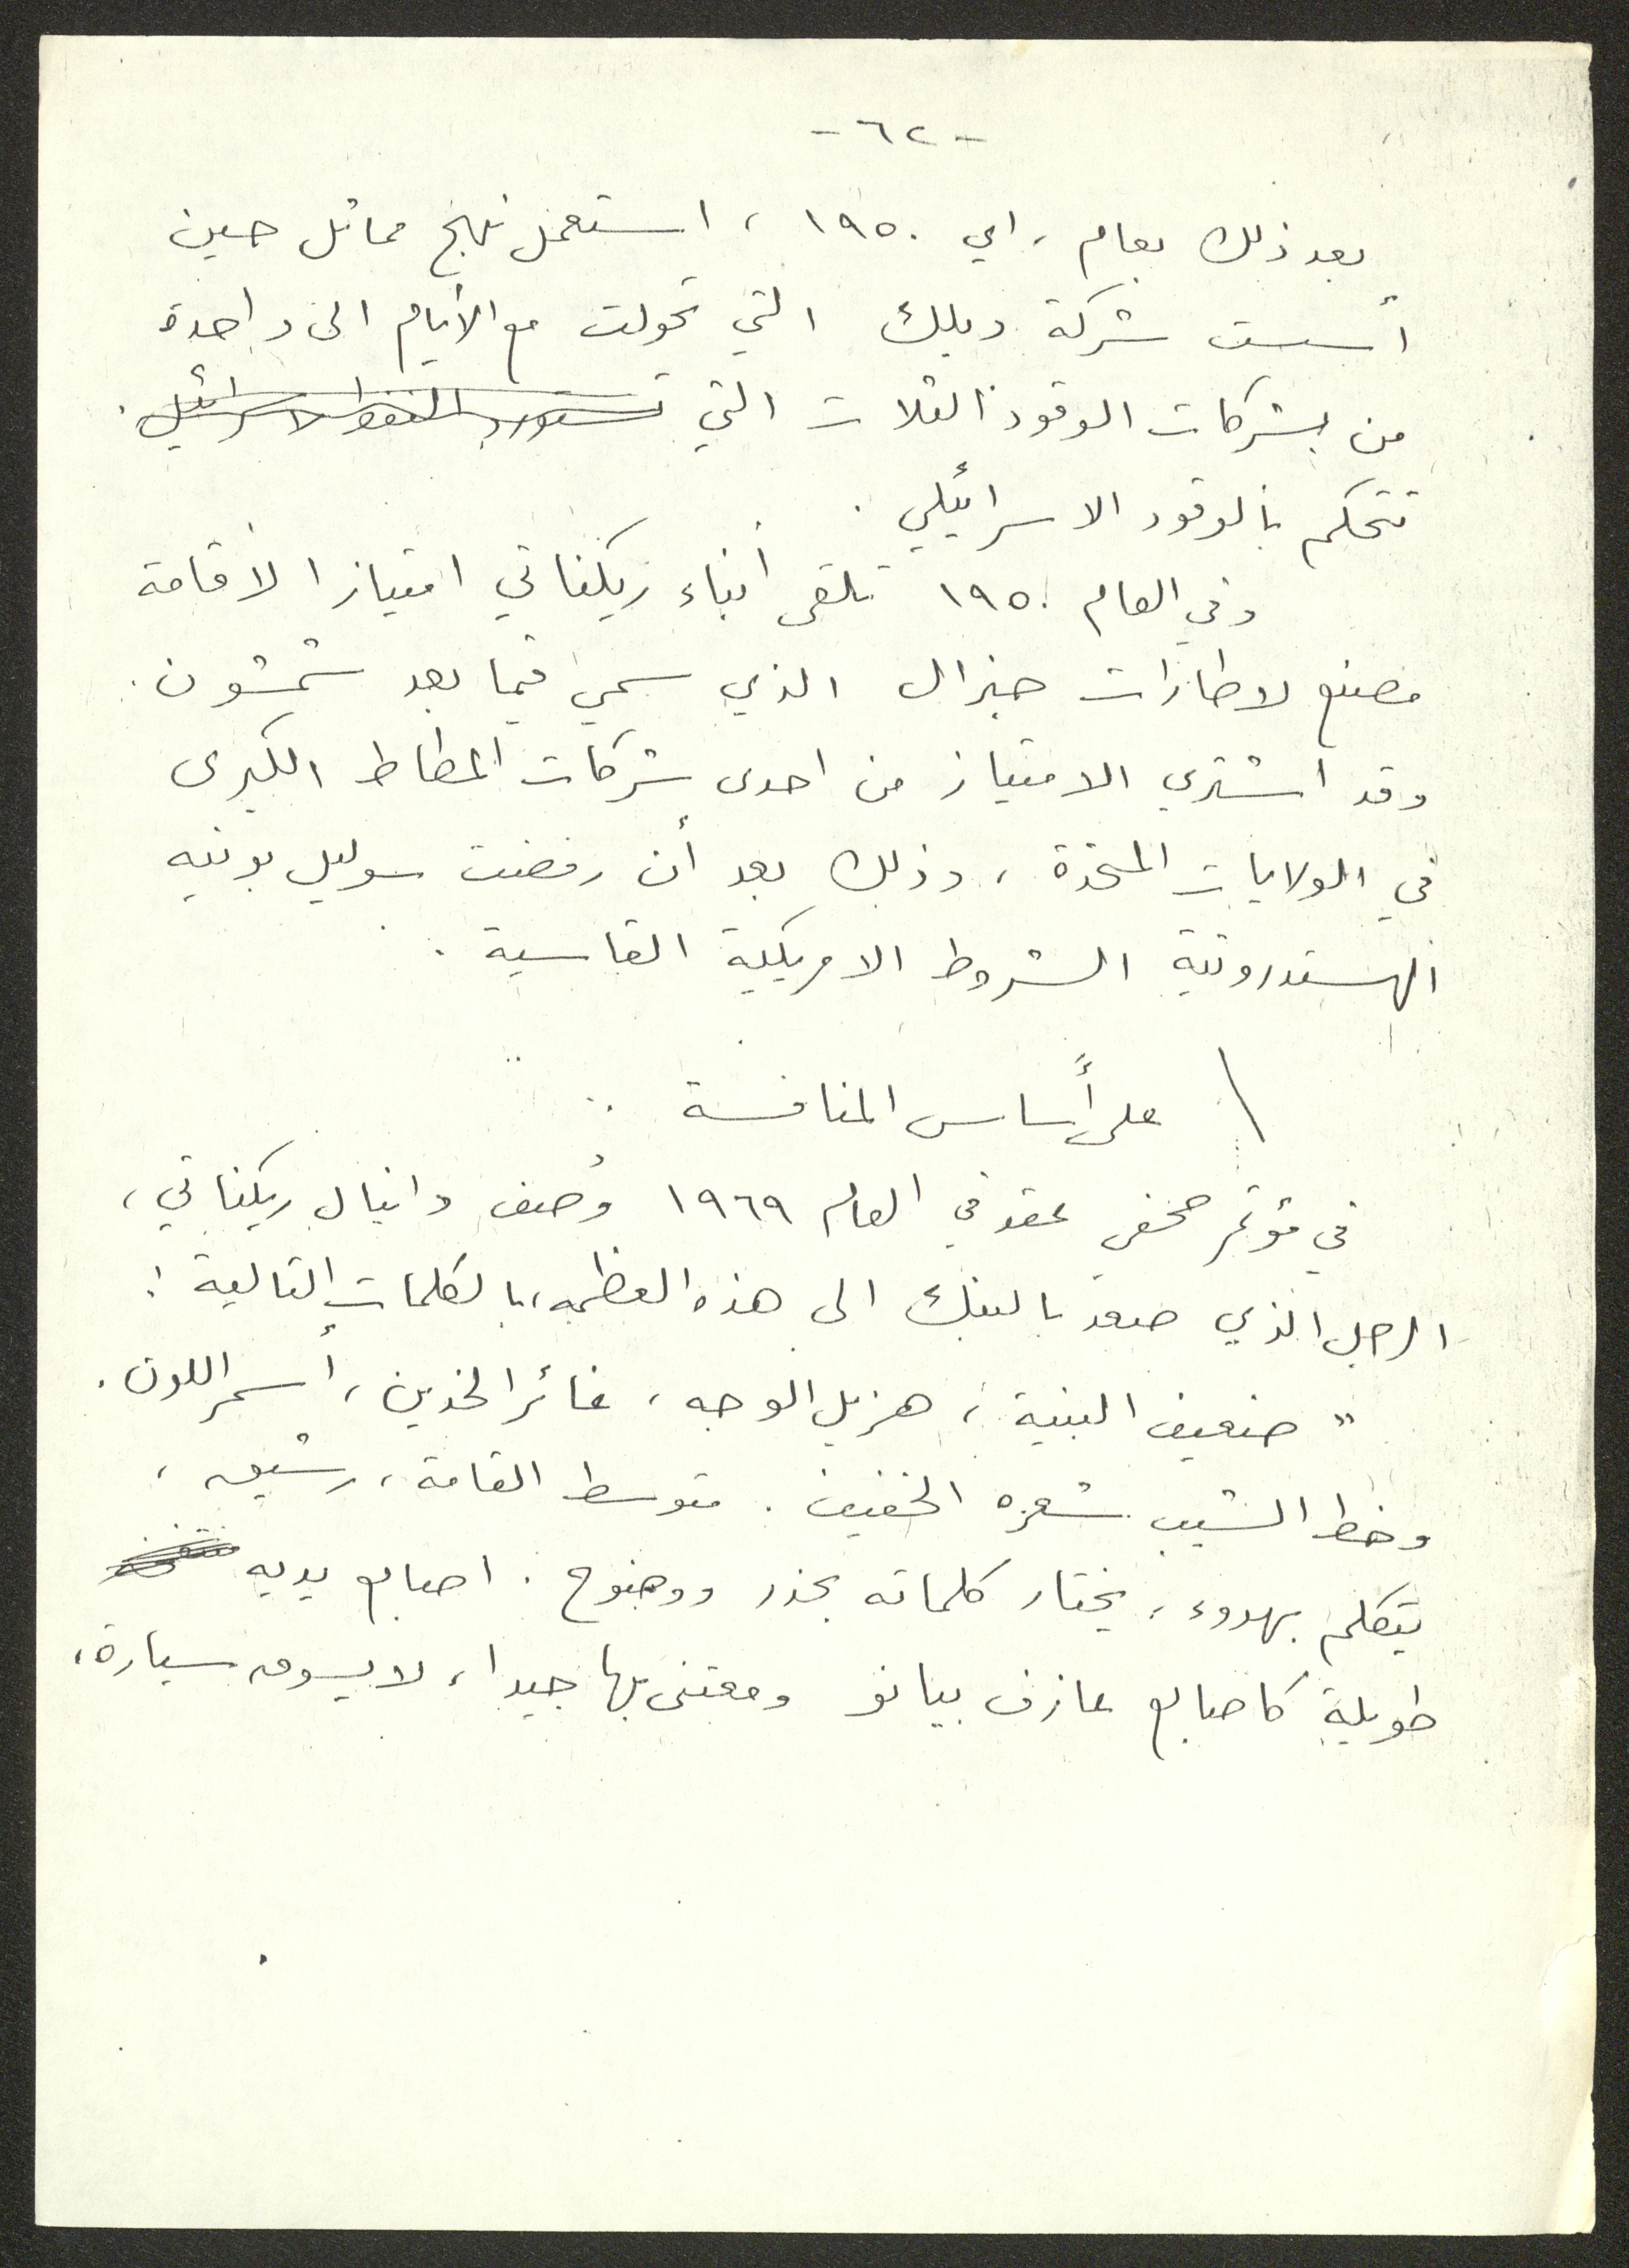 -٦٢-
بعد ذلك بعام، اي ١٩٥٠، استعمل نهج مماثل حين
أسست شركة ديلك التي تحولت مع الأيام الى واحدة
من شركات الوقود الثلاث التي تستورد النفط الاسرائيلي.
تتحكم بالوقود الاسرائيلي.
وفي العام ١٩٥٠ تلقى أبناء ريكناتي امتيازا لاقامة
مصنع لاطارات جنرال الذي سمي فيما بعد شمشون.
وقد اشتري الامتياز من احدى شركات المطاط الكبرى
في الولايات المتحدة، وذلك بعد أن رفضت سوليل بونيه
الهستدروتية الشروط الامريكية القاسية.
على أساس المنافسة
في مؤتمر صحفي عقد في العام ١٩٦٩ وُصف دانيال ريكناتي،
الرجل الذي صعد بالبنك الى هذه العظمه، بالكلمات التالية:
" ضعيف البنية، هزيل الوجه، غائر الخدين، أسمر اللون.
وخط الشيب شعره الخفيف. متوسط القامة، رشيق،
يتكلم بهدوء، يختار كلماته بحذر ووضوح. اصابع يديه
طويلة كاصابع عازف بيانو ومعتنى بها جيدا، لا يسوق سيارة،